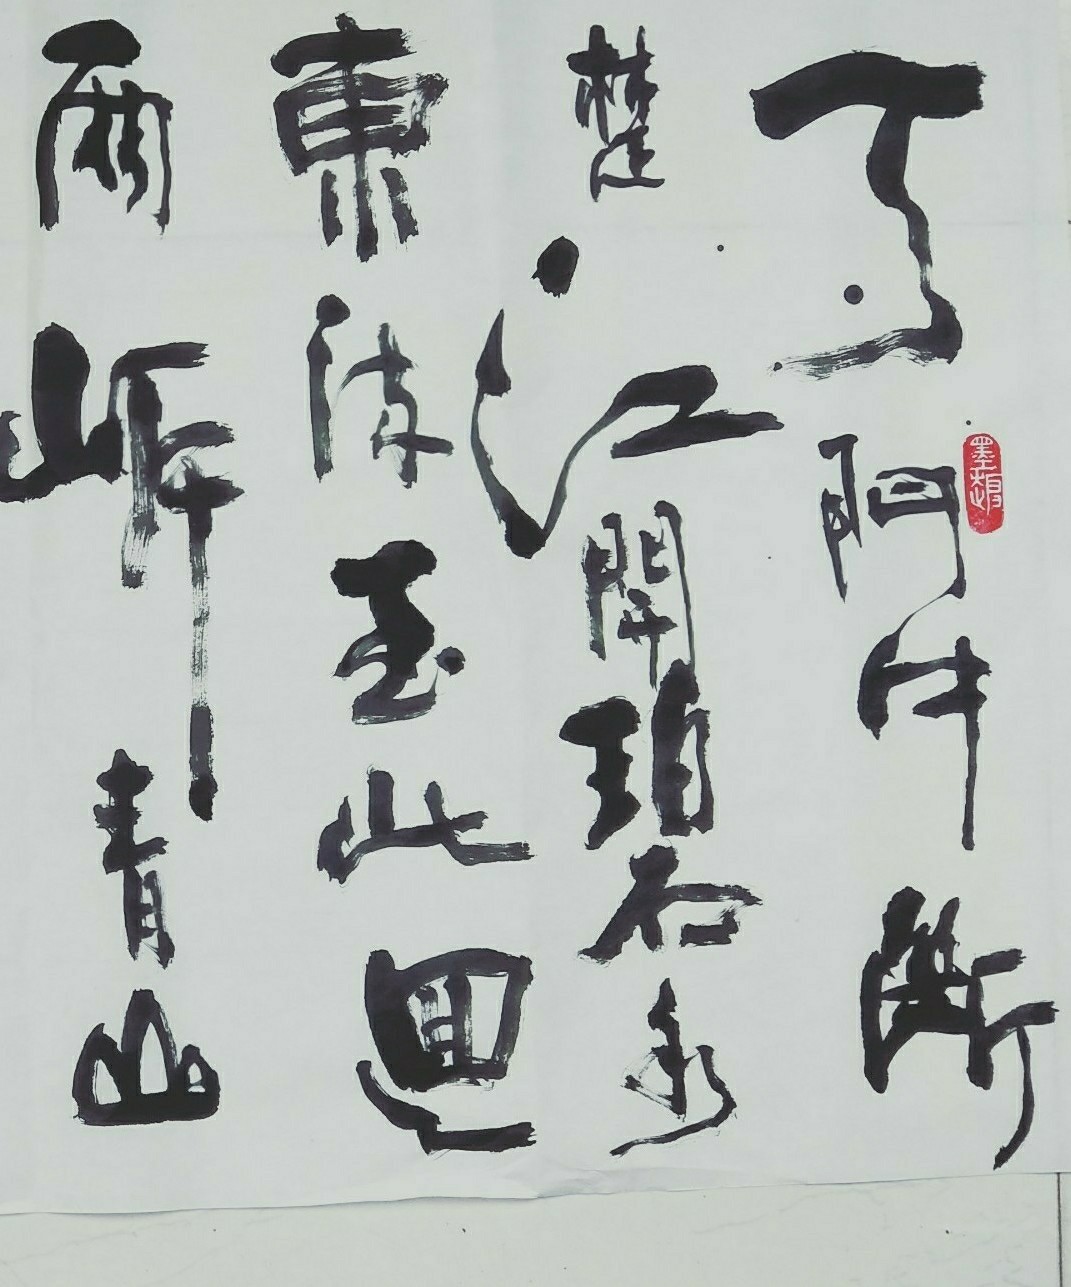 天門中斷
楚江開碧水
東流至此迴
兩岸青山
墨趣